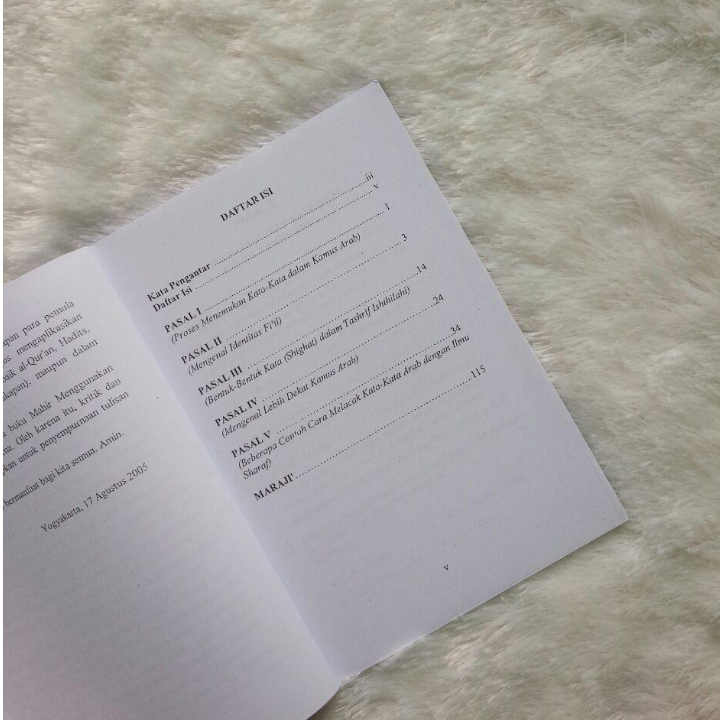 pan para pemula
us mengaplikasikan
nik al-Qur'an, Hadits,
kapan), maupun dalam
buku Mahir Menggunakan
na. Oleh karena itu, kritik dan
kan untuk penyempurnaan tulisan
bermanfaat bagi kita semua. Amin.
Yogyakarta, 17 Agustus 2005
DAFTAR ISI
Kata Pengantar ........ iii
Daftar Isi ........ v
PASAL I ........ 1
(Proses Menemukan Kata-Kata dalam Kamus Arab)
PASAL II ........ 3
(Mengenal Identitas Fi'il)
PASAL III ........ 14
(Bentuk-Bentuk Kata (Shighat) dalam Tashrif Ishthilahi)
PASAL IV ........ 24
(Mengenal Lebih Dekat Kamus Arab)
PASAL V ........ 34
(Beberapa Contoh Cara Melacak Kata-Kata Arab dengan Ilmu
Sharaf)
MARAJI' ........ 115
v